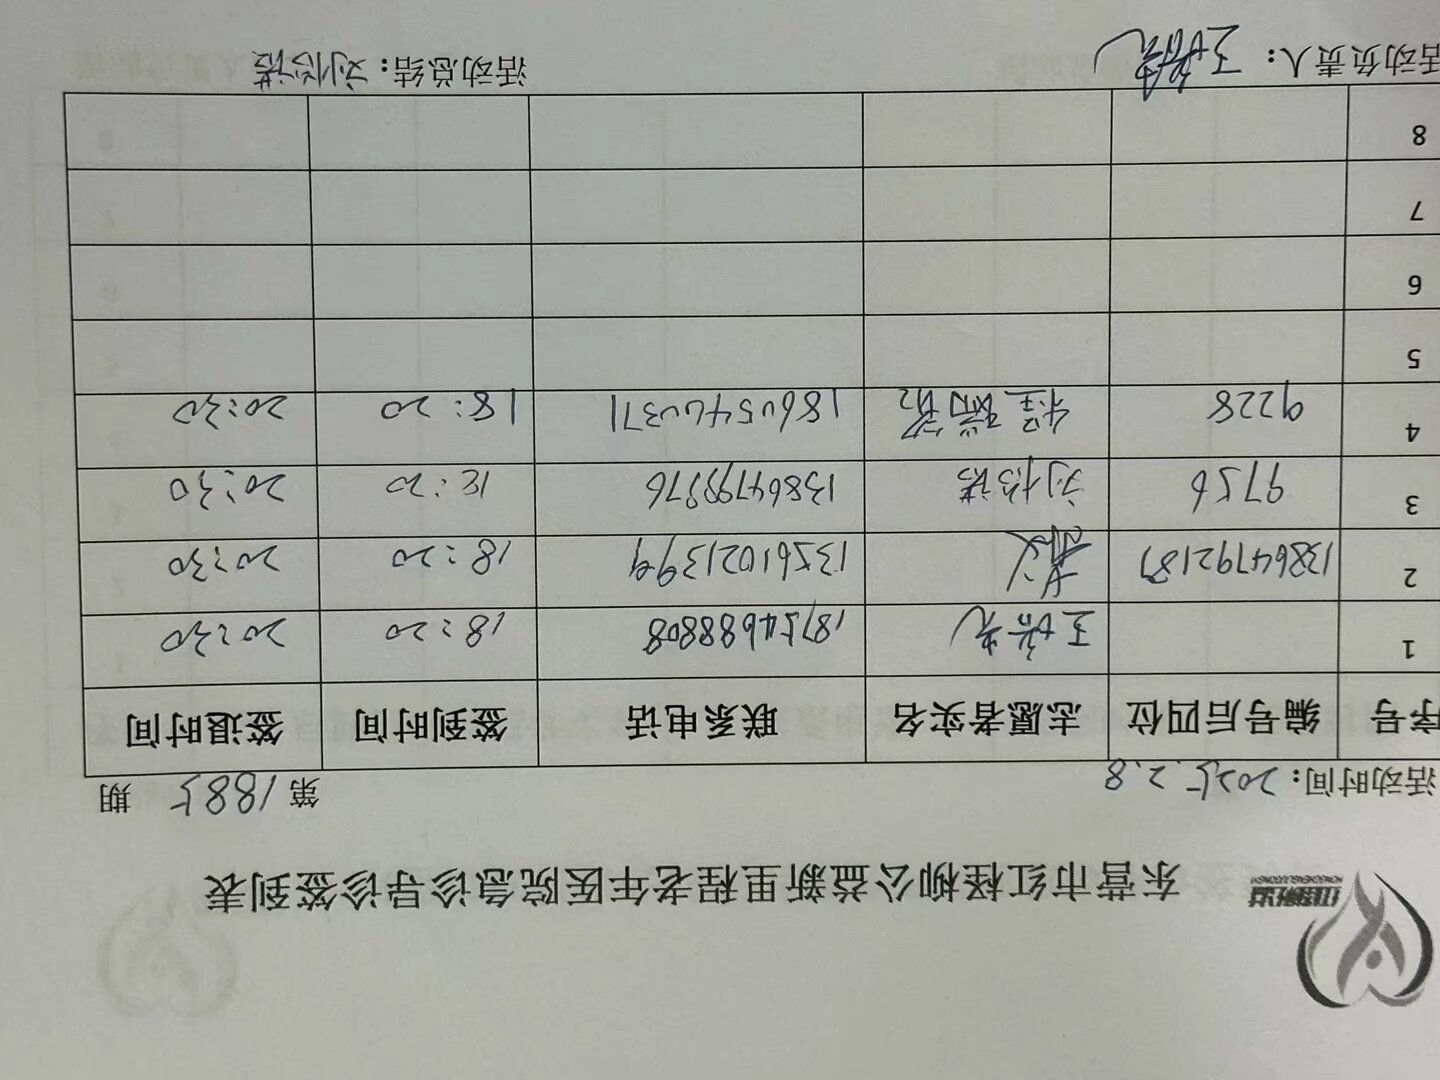 东营市红柽柳公益新里程老年医院急诊导诊签到表
活动时间：2025.2.8 第1885期
序号 编号后四位 志愿者实名 联系电话 签到时间 签退时间
1 18754688808 18:20 20:30
2 13864792187 13561021399 18:20 20:30
3 9756 刘修诺 13864799976 18:20 20:30
4 9228 18605460371 18:20 20:30
5
6
7
8
活动负责人： 活动总结：刘修诺